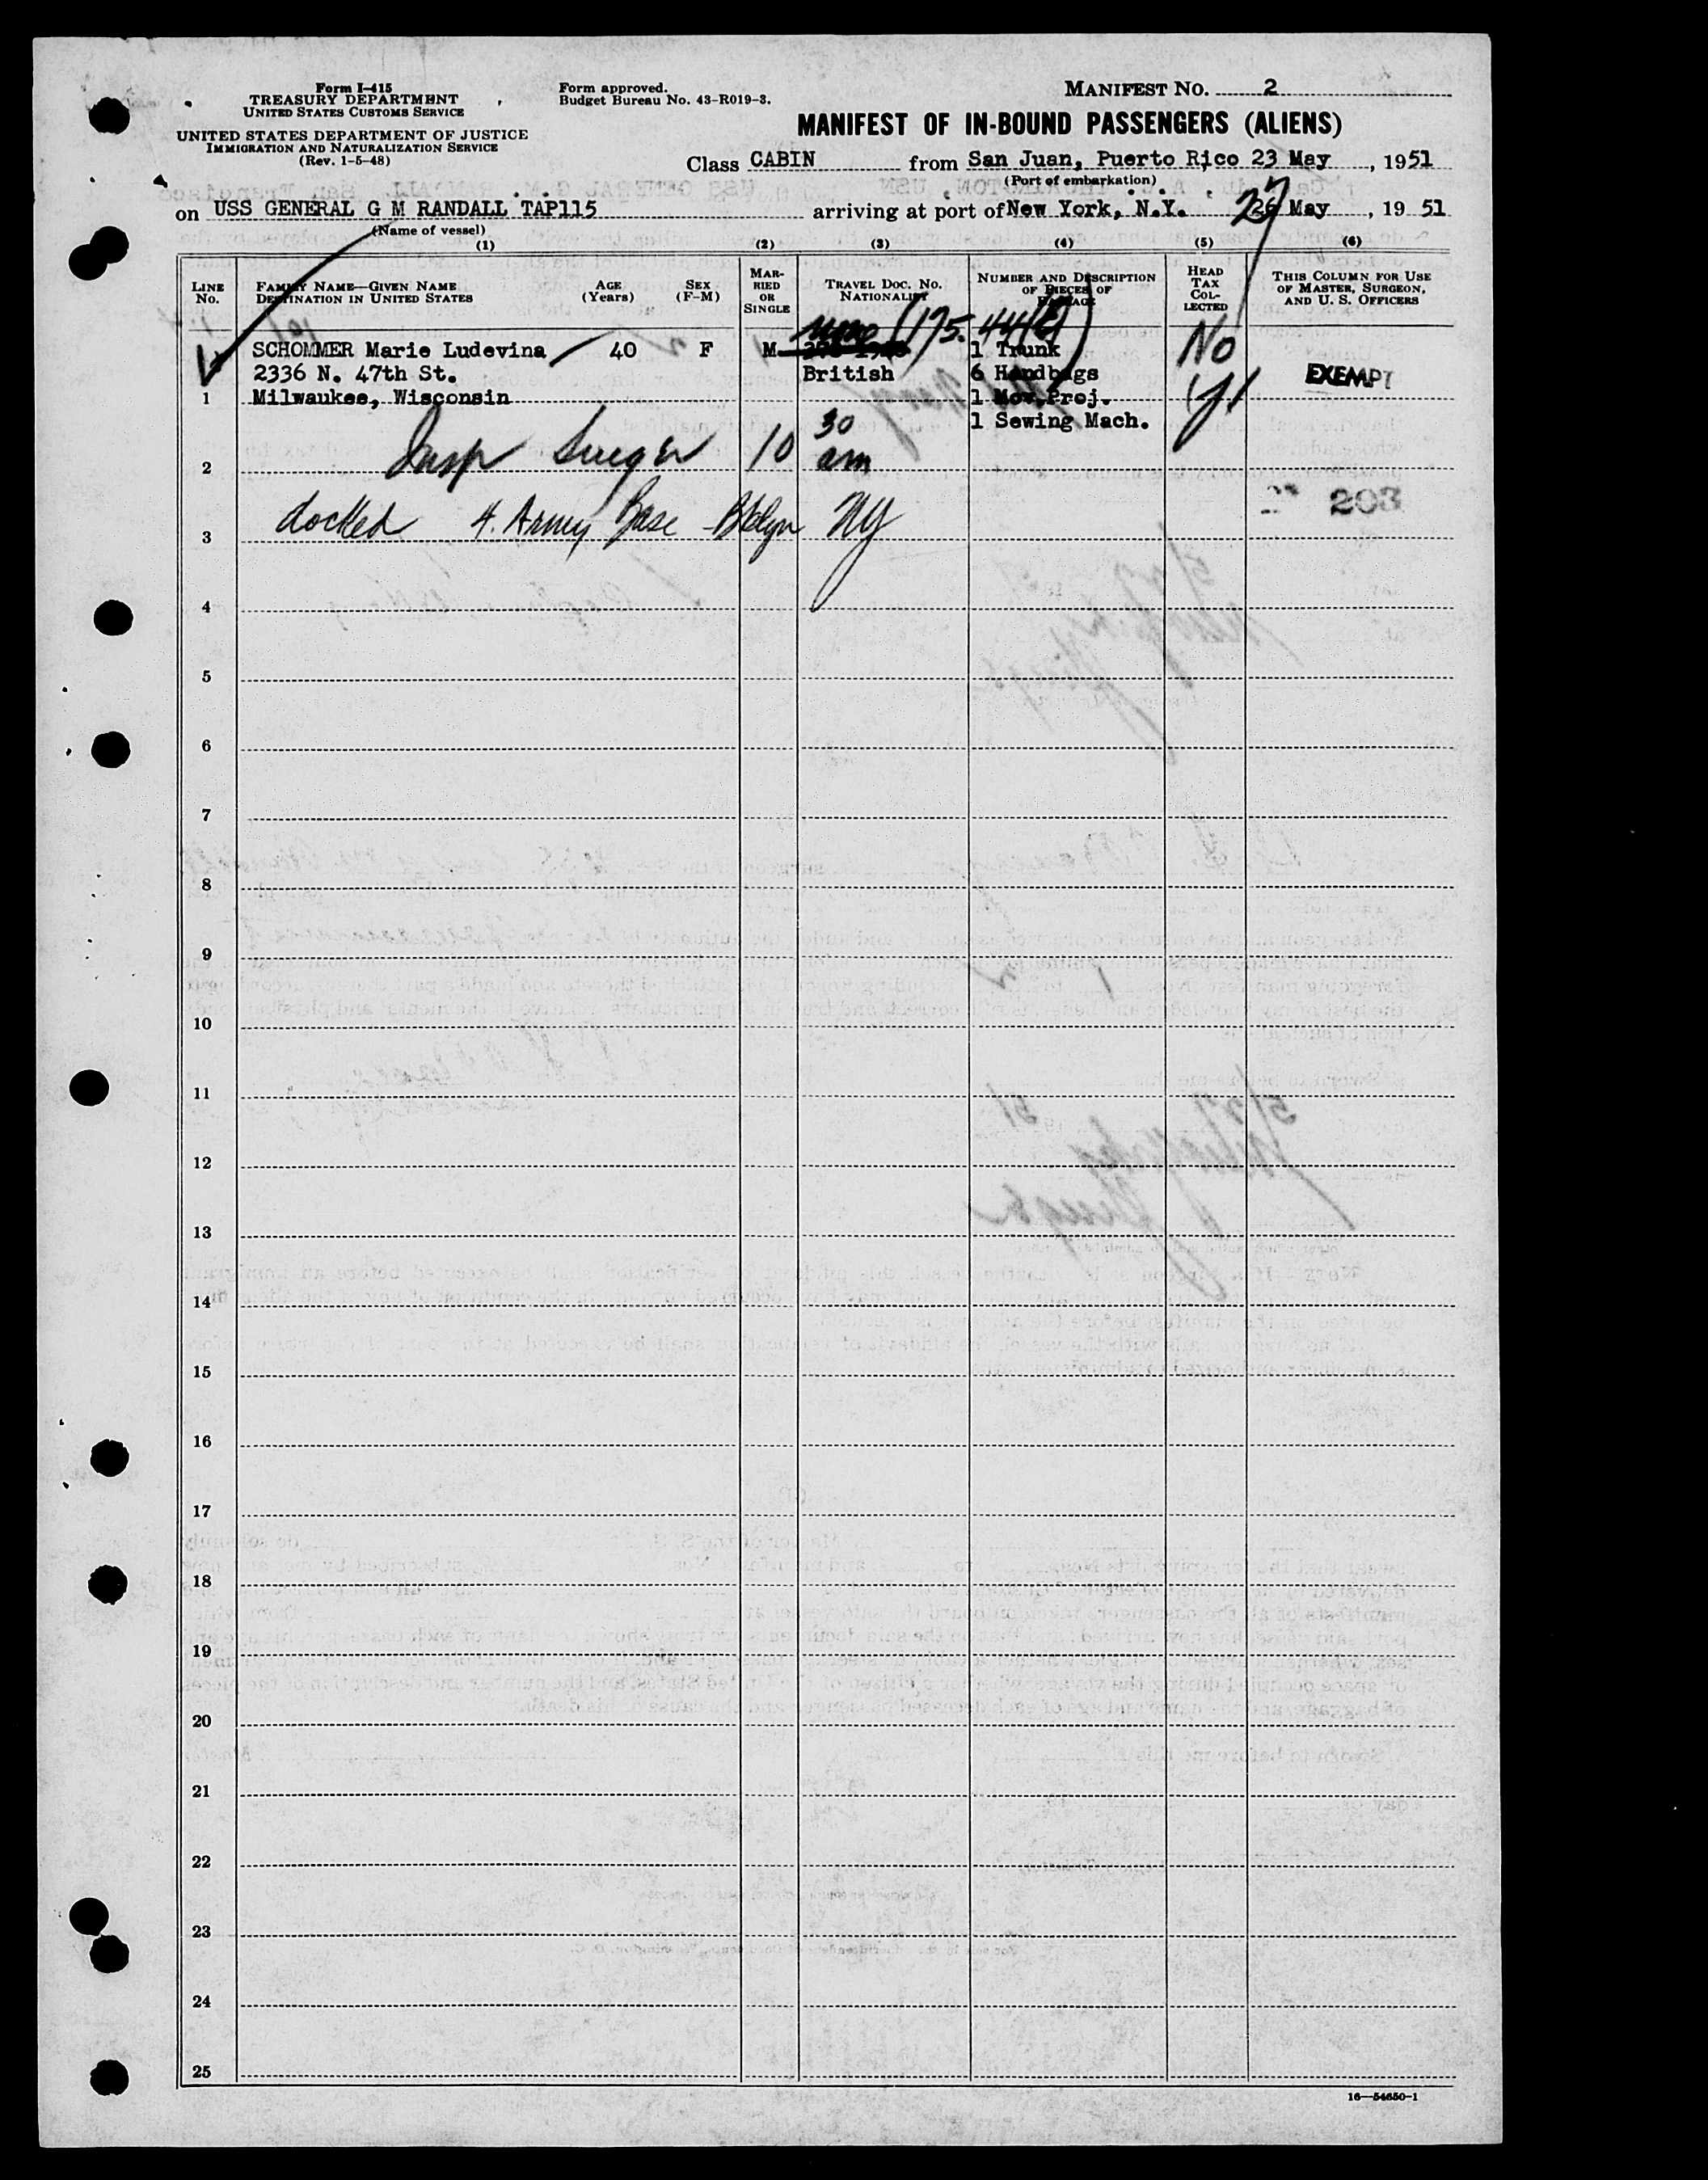 Form I-415
TREASURY DEPARTMENT
UNITED STATES CUSTOMS SERVICE
UNITED STATES DEPARTMENT OF JUSTICE
IMMIGRATION AND NATURALIZATION SERVICE
(Rev. 1-5-48)
Form approved.
Budget Bureau No. 43-R019-3.
MANIFEST NO. 2
MANIFEST OF IN-BOUND PASSENGERS (ALIENS)
Class CABIN from San Juan, Puerto Rico 23 May, 1951
(Port of embarkation)
on USS GENERAL G M RANDALL TAP115 arriving at port of New York, N.Y. 27 May, 19 51
(Name of vessel)
(1) (2) (3) (4) (5) (6)
LINE No.
FAMILY NAME—GIVEN NAME
DESTINATION IN UNITED STATES
AGE (Years)
SEX (F-M)
MARRIED OR SINGLE
TRAVEL DOC. NO.
NATIONALITY
NUMBER AND DESCRIPTION OF PIECES OF BAGGAGE
HEAD TAX COLLECTED
THIS COLUMN FOR USE OF MASTER, SURGEON, AND U. S. OFFICERS
(175. 44(6)
SCHOMMER Marie Ludevina 40 F M 1 Trunk No
2336 N. 47th St. British 6 Handbags EXEMPT
1 Milwaukee, Wisconsin 1 Mov. Proj.
1 Sewing Mach.
2 Insp 10 30 am
203
3 docked 4. Army Base Bklyn NY
4
5
6
7
8
9
10
11
12
13
14
15
16
17
18
19
20
21
22
23
24
25
16—54650-1